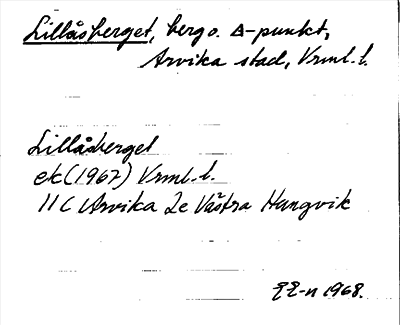 Lillåsberget, berg o. Δ-punkt,
Arvika stad, Vrml. l.
Lillåsberget
ek (1967) Vrml. l.
11 C Arvika 2e Västra Hungvik
1968.